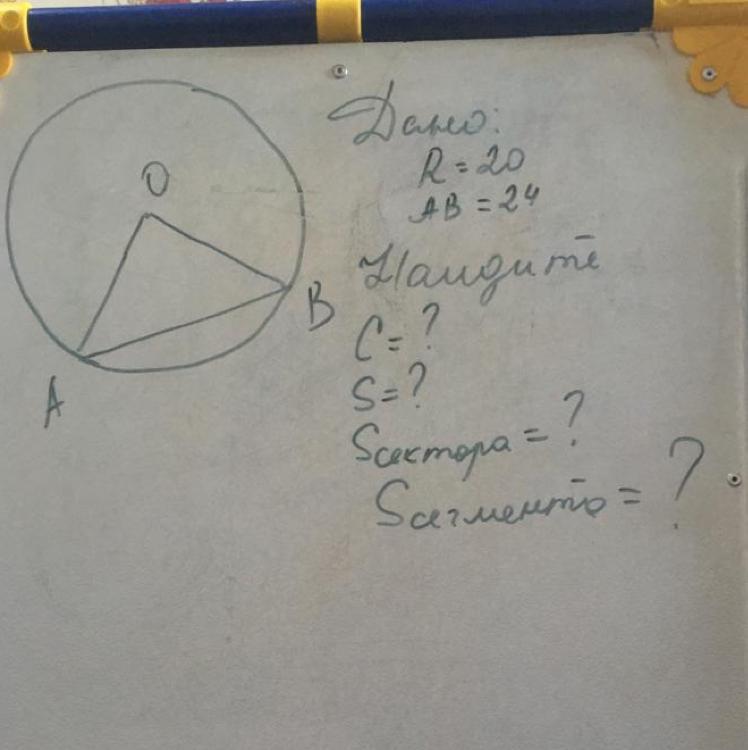 Дано:
R = 20
AB = 24
Найдите
C = ?
S = ?
Sсектора = ?
Sсегмента = ?
O
B
A